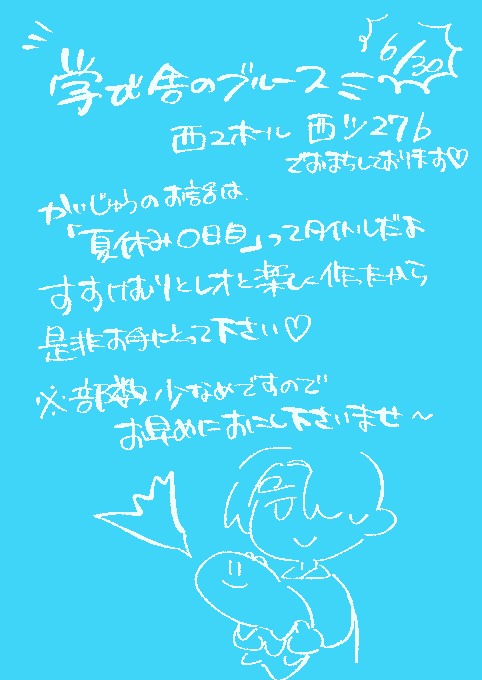 学び舎のブルース
6/30
西2ホール 西ツ27b
でおまちしております♡
かいじゅうのお話は、
「夏休み〇日目」ってタイトルだよ
すすけむりとレオと楽しく作ったから
是非お手にとって下さい♡
※部数少なめですので
お早めにおこし下さいませ～